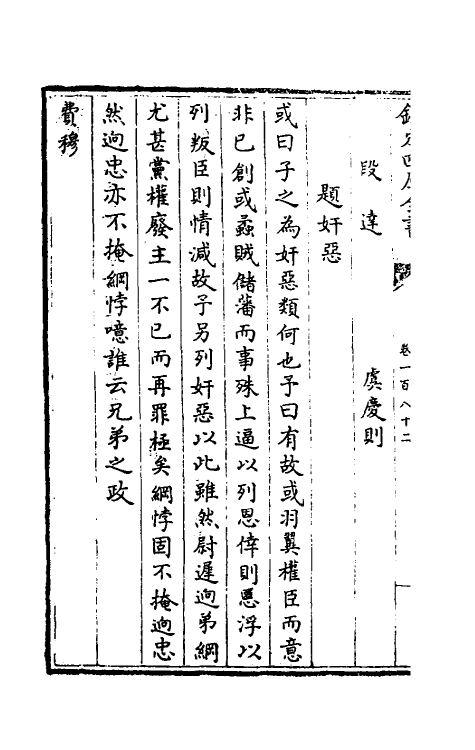 欽定四庫全書
卷一百八十二
段達
虞慶則
題奸惡
或曰子之為奸惡類何也予曰有故或羽翼權臣而意
非已創或蟊賊儲藩而事殊上逼以列恩倖則惡浮以
列叛臣則情減故予另列奸惡以此雖然尉遲迥弟綱
尤甚黨權廢主一不已而再罪極矣綱悖固不掩迥忠
然迥忠亦不掩綱悖噫誰云兄弟之政
費穆